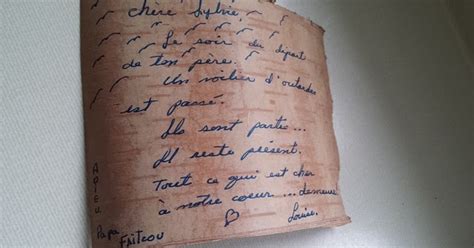 chère Sylvie,
Le soir du départ
de ton père.
Un voilier d'outardes
est passé.
Ils sont partis...
Il reste présent.
Tout ce qui est cher
à notre coeur... demeure
Louise.
ADIEU
Papa